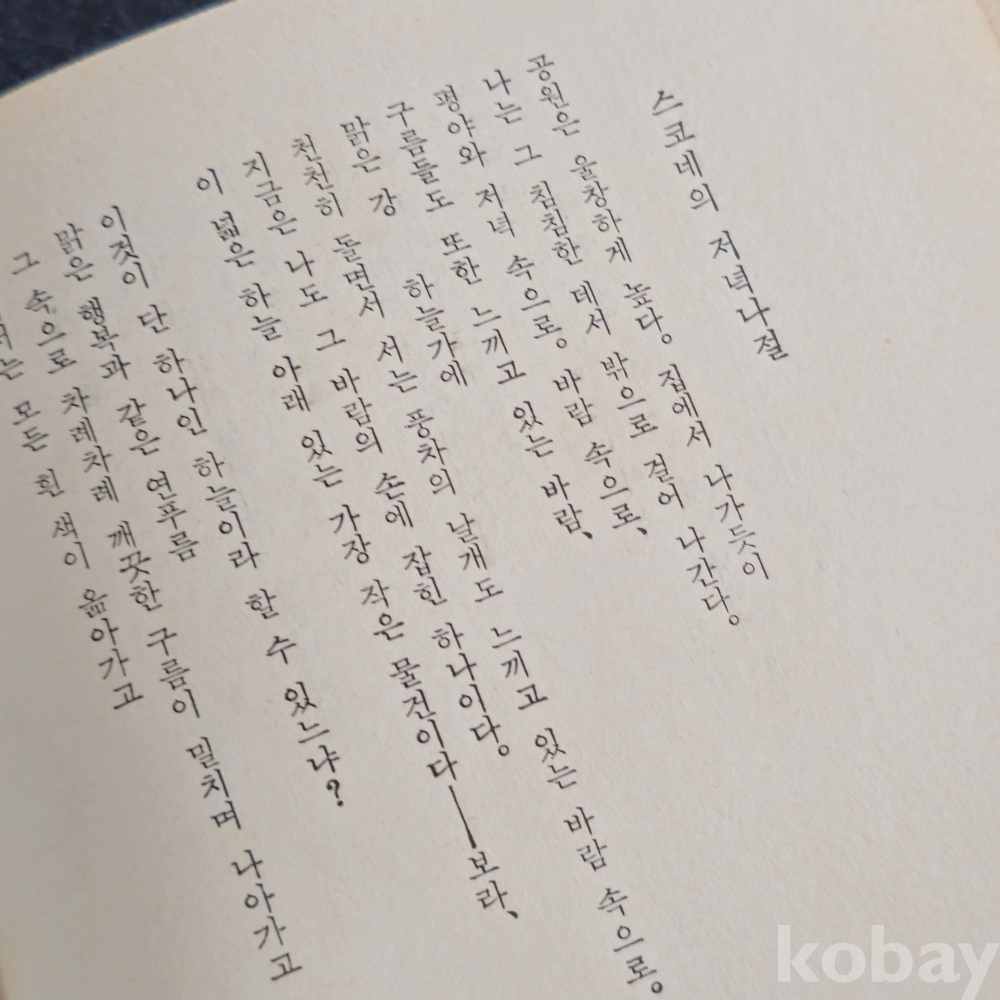 스코네의 저녁나절
공원은 울창하게 높다。 집에서 나가듯이
나는 그 침침한 데서 밖으로 걸어 나간다。
평야와 저녁 속으로。 바람 속으로、
구름들도 또한 느끼고 있는 바람、
맑은 강 하늘가에
천천히 돌면서 서는 풍차의 날개도 느끼고 있는 바람 속으로。
지금은 나도 그 바람의 손에 잡힌 하나이다。
이 넓은 하늘 아래 있는 가장 작은 물건이다――보라、
이것이 단 하나인 하늘이라 할 수 있느냐?
맑은 행복과 같은 연푸름
그 속으로 차례차례 깨끗한 구름이 밀치며 나아가고
모든 흰 색이 옮아가고
kobay